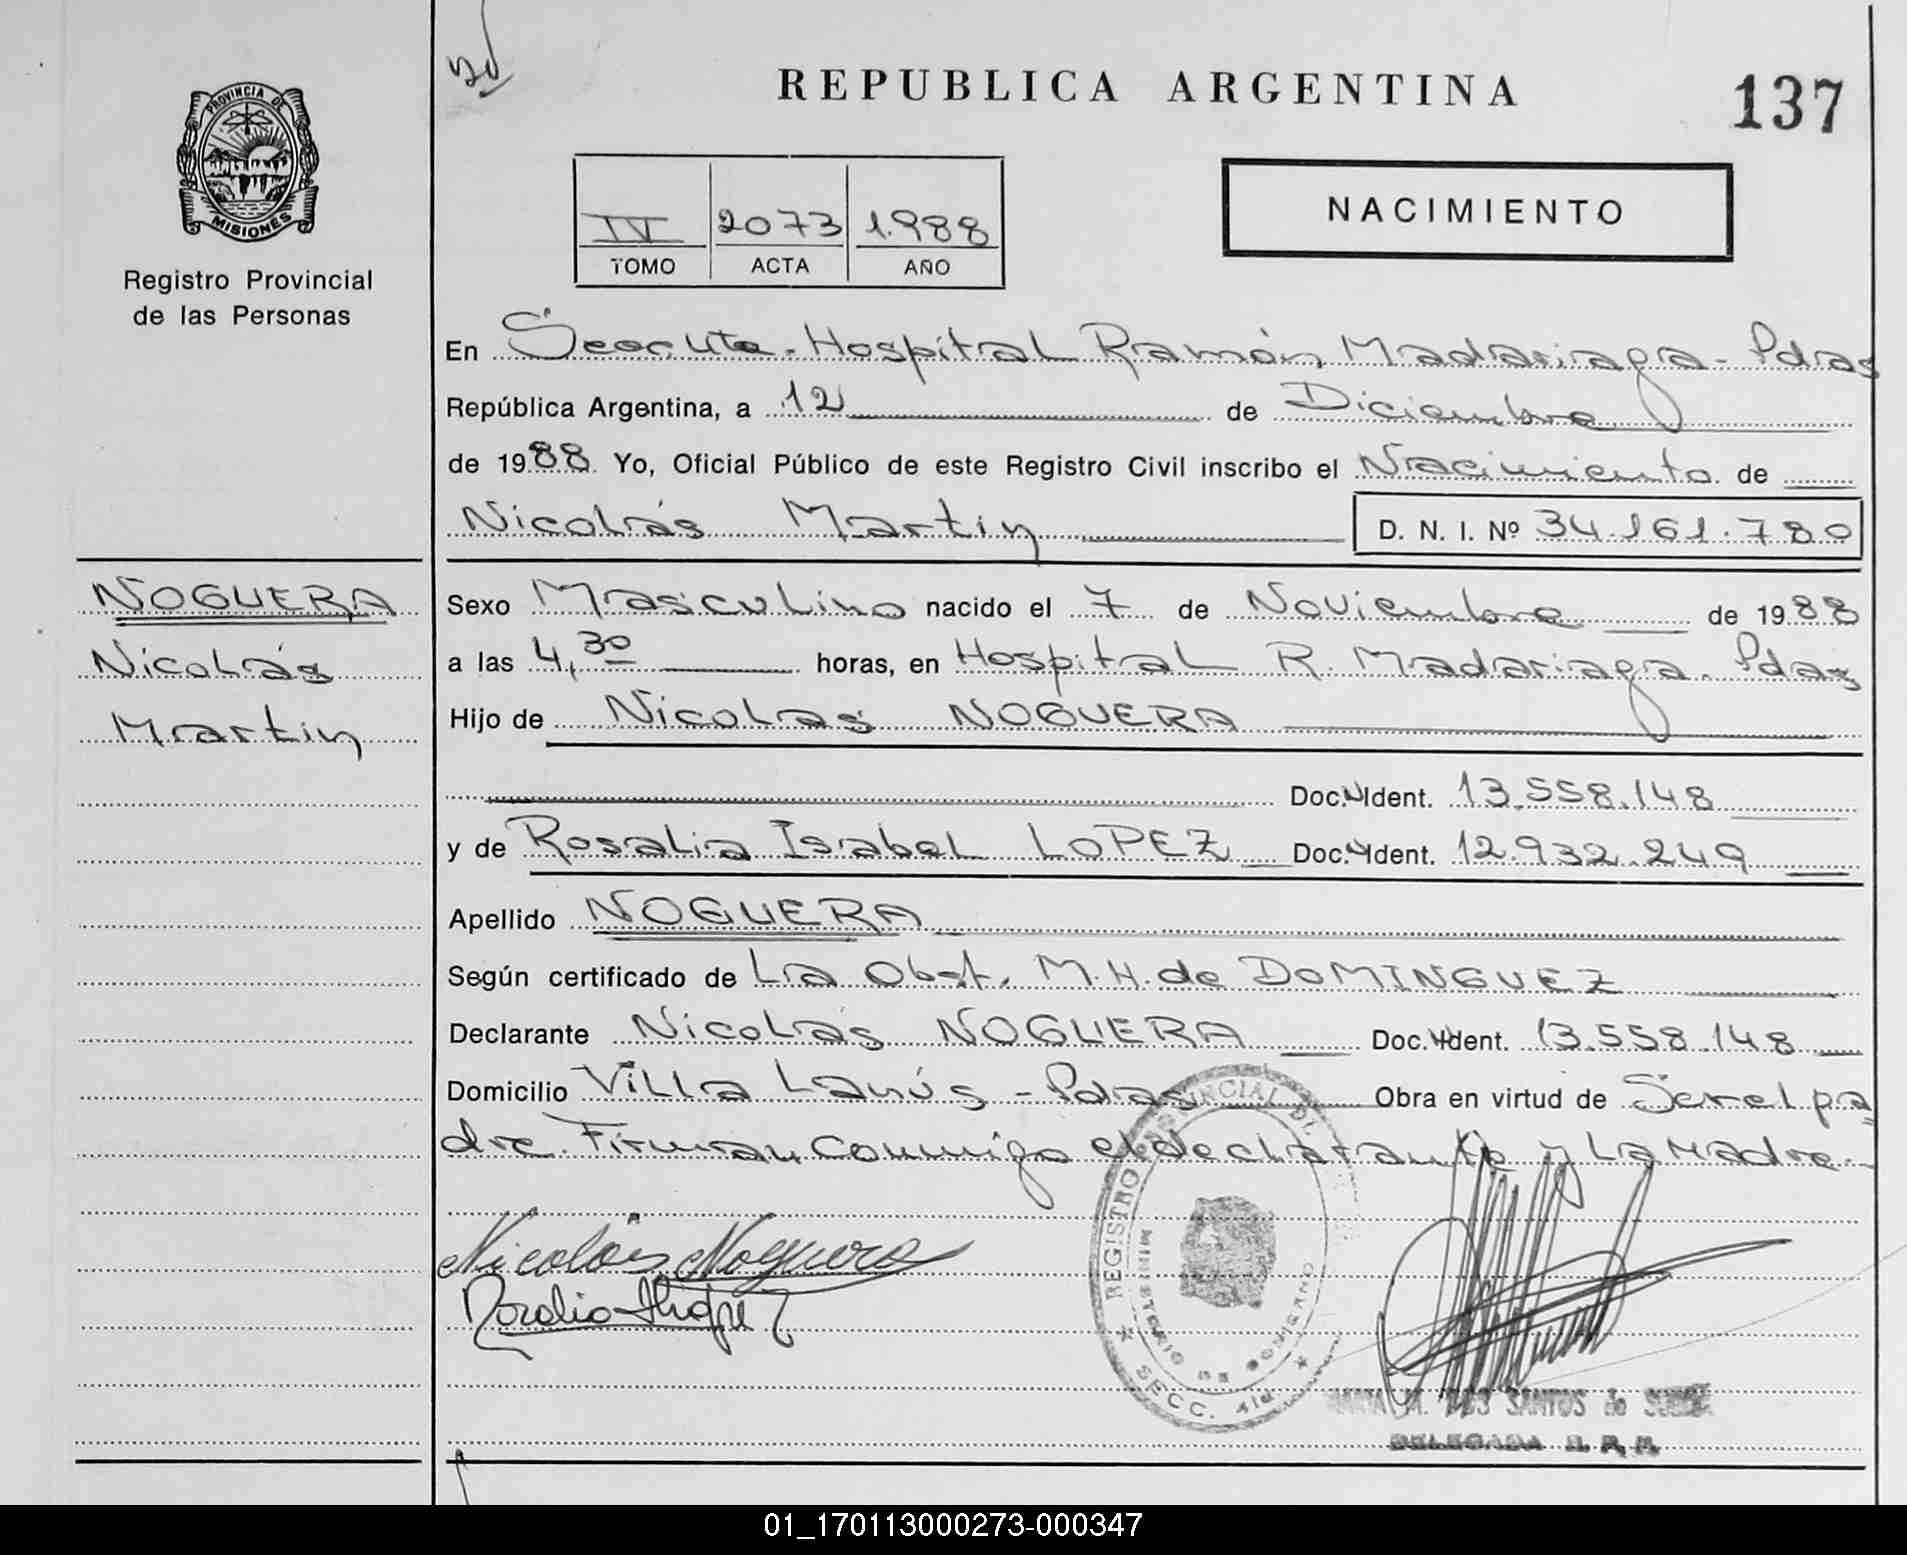 PROVINCIA DE
MISIONES
Registro Provincial
de las Personas
REPUBLICA ARGENTINA
137
IV 2073 1.988
TOMO ACTA AÑO
NACIMIENTO
En Seccita - Hospital Ramón Madariaga - Pdas
República Argentina, a 12 de Diciembre
de 1988 Yo, Oficial Público de este Registro Civil inscribo el Nacimiento de
Nicolás Martin D. N. I. Nº 34.161.780
NOGUERA
Nicolás
Martin
Sexo Masculino nacido el 7 de Noviembre de 1988
a las 4,30 horas, en Hospital R. Madariaga. Pdas
Hijo de Nicolas NOGUERA
Doc. Ident. 13.558.148
y de Rosalia Isabel LOPEZ Doc. Ident. 12.932.249
Apellido NOGUERA
Según certificado de La Obst. M.H. de DOMINGUEZ
Declarante Nicolás NOGUERA Doc. Ident. 13.558.148
Domicilio Villa Lanús - Pdas Obra en virtud de Ser el pa
dre. Firman conmigo el declarante y La Madre
Nicolás Noguera
REGISTRO PROVINCIAL DE
MINISTERIO DE GOBIERNO
SECC. 4ta
M. DOS SANTOS de
DELEGADA R. P. P.
01_170113000273-000347